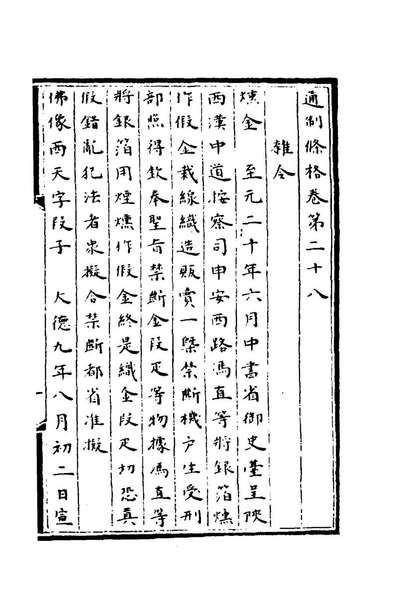 通制條格卷第二十八
雜令
燻金　至元二十年六月中書省御史臺呈陝
西漢中道按察司申安西路馮直等將銀箔燻
作假金裁線織造販賣一槩禁斷機戶生受刑
部照得欽奉聖旨禁斷金段疋等物據馮直等
將銀箔用煙燻作假金終是織金段疋切恐真
假錯亂犯法者衆擬合禁斷都省准擬
佛像西天字段子　大德九年八月初二日宣